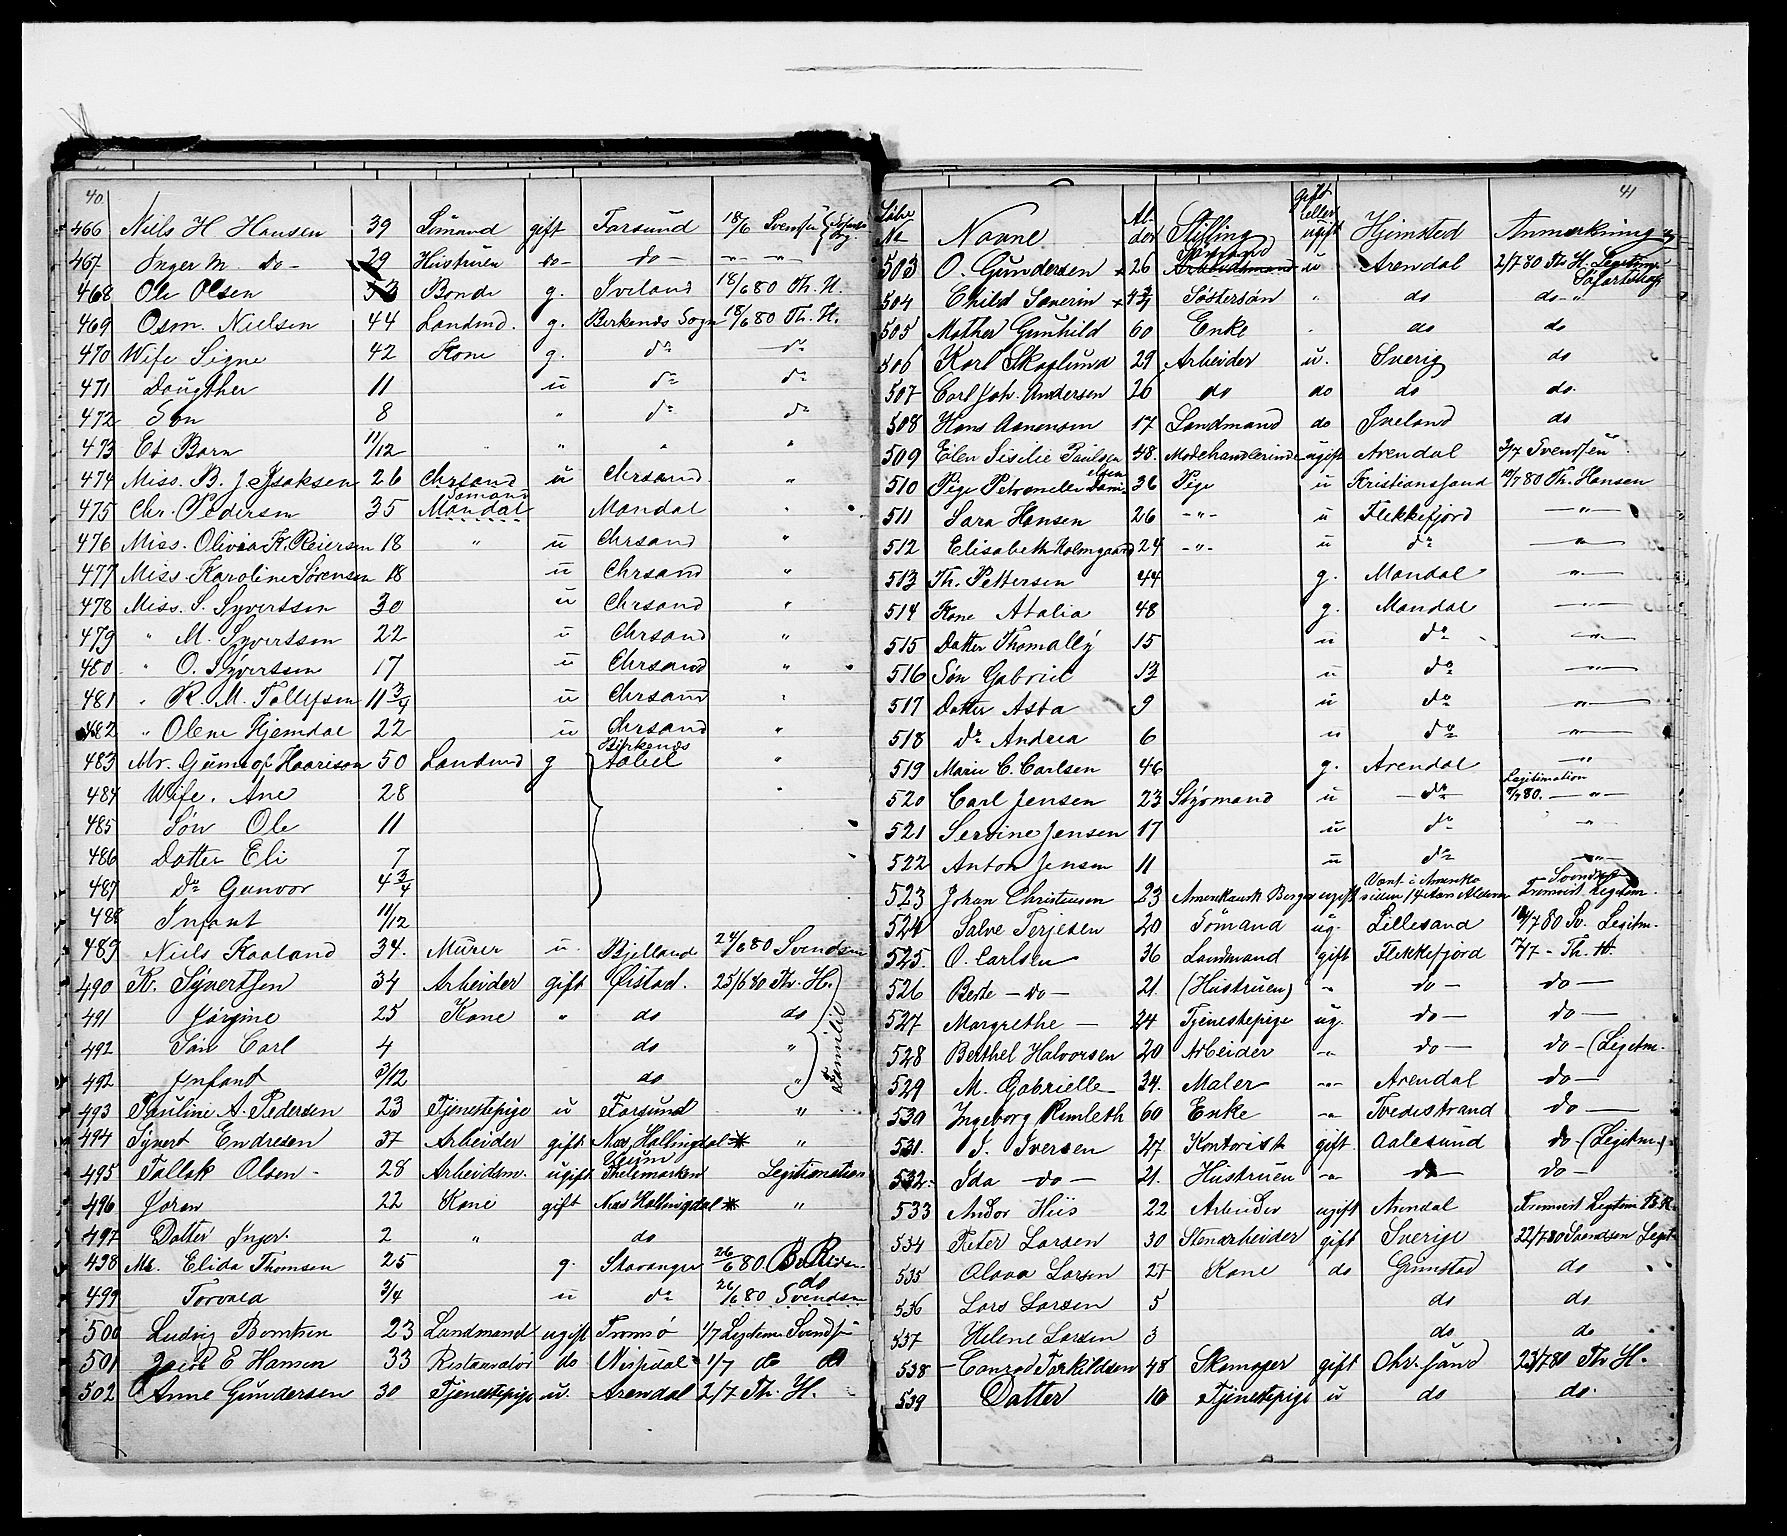 40
466 Niels H Hansen 39 Sömand gift Farsund 18/6 Svendsen
467 Inger M. do- 29 Hustruen do- do- -"- -"-
468 Ole Olsen Bonde g. Iveland 18/6 80 Th. H.
469 Osm. Nielsen 44 Landmd. g. Birkenæs Sogn 18/6 80 Th. H.
470 Wife Signe 42 Kone g. do do
471 Daugther 11 u do do
472 Sön 8 " do do
473 Et Barn 11/12 " " "
474 Miss. B. J. Isaksen 26 Chrsand u Chrsand "
475 Chr. Pedersen 35 Sömand Mandal Mandal "
476 Miss. Olivia K. Reiersen 18 " u Chrsand "
477 Miss. Karoline Sörensen 18 u Chrsand "
478 Miss. S. Syvertsen 30 u Chrsand "
479 " M. Syvertsen 22 u Chrsand "
480 " O. Syvertsen 17 u Chrsand "
481 " R. M. Tollefsen 11 3/4 u Chrsand "
482 " Olene Hjemdal 22 u Chrsand "
483 Mr. Gunulf Haarison 50 Landmd g Birkenæs "
484 Wife. Ane 28 "
485 Sön Ole 11
486 Datter Eli 7
487 Do Gunvor 4 3/4
488 Infant 11/12
489 Niels Kaaland 34. Murer u. Bjelland 24/6 80 Svendsen
490 K. Syvertsen 34 Arbeider gift Öistad. 25/6 80 Th. H.
491 Jörgine 25 Kone " do do
492 Sön Carl 4 do "
492 Infant 3/12 do " Familie
493 Pauline A. Pedersen 23 Tjenestepige u Farsund "
494 Syvert Endresen 37 Arbeider gift Næs, Hallingdal * "
495 Tallak Olsen - 28 Arbeidsm. ugift Thelemarken Legitimation
496 Jöran 22 Kone gift Næs Hallingdal * "
497 Datter Inger. 2 " do
498 Mrs. Elida Thomsen 25 g. Stavanger 26/6 80
499 Torvald 3/4 u do 26/6 80 Svendsen
500 Ludvig Berntsen 23 Landmand ugift Tromsö 1/7 Legitim Svendsen
501 Jacob E Hansen 33 Restauratör do 1/7 do do
502 Anne Gundersen 30 Tjenestepige u. Arendal 2/7 Th. H.
41
Löbe No Navne Al-der Stilling Gift eller ugift Hjemsted Anmerkning
503 O. Gundersen 26 Arbeidsmand Sömand u Arendal 2/7 80 Th H. Legitim. Söfartsbog
504 Child Severin Söstersön " do do- "
505 Mother Gunhild 60 Enke " do do
506 Karl Skoglund 29 Arbeider u. Sverig do
507 Carl Joh. Andersen 26 do do do do.
508 Hans Aanensen 17 Landmand do Iveland do
509 Elen Sisilie Paulsen 48. Modehandlerinde ugift Arendal 3/7 Svendsen
510 Pige Petronelle Danielsen 36 Pige u Kristiansand 10/7 80 Th. Hansen
511 Sara Hansen 26 -"- u Flekkefjord -"-
512 Elisabeth Holmgaard 24 -"- u do -"-
513 Th. Pettersen 44 g. Mandal -"-
514 Kone Atalia 48 g. Mandal -"-
515 Datter Thomally 15 u do -"-
516 Sön Gabriel 12 u do -"-
517 Datter Asta 9 u do -"-
518 do Andrea 6 u do -"-
519 Marie C. Carlsen 46 g. Arendal -"-
520 Carl Jensen 23 Styrmand u -do- Legitimation
521 Servine Jensen 17 u do -"-
522 Anton Jensen 11 u do -"-
523 Johan Christensen 23 Amerikansk Borger ugift Været i Amerika siden 14 Aars Alderen Svendsen Fremvist Legitim.
524 Salve Terjesen 20 Sömand ug. Lillesand 10/7 80 Sv. Legitm.
525. O. Carlsen 36 Landmand gift Flekkefjord 7/7 - Th. H.
526 Berte - do - 21. (Hustruen) -"- do - do -
527 Margrethe - 24 Tjenestepige ug. do - do -
528 Berthel Halvorsen 20 Arbeider -"- do - do - (Legitm.
529 M. Gabrielle 34. Maler -"- Arendal do -
530 Ingeborg Rimleth 60 Enke -"- Tvedestrand do -
531. J. Iversen 27 Kontorist gift. Aalesund do - (Legitm.)
532. Ida - do - 21. Hustruen -"- do - do -
533 Andor Hiis 22 Arbeider ugift Arendal Fremvist Legitim Th. H.
534 Peter Larsen 30 Stenarbeider gift Sverige 22/7 80 Svendsen Legit
535 Olava Larsen 27 Kone do Grimstad do
536 Lars Larsen 5 do do
537 Helene Larsen 3 do do
538 Conrad Torkildsen 48 Skomager gift Chr.sand 23/7 80 Th H.
539 Datter 16 Tjenestepige u do do.